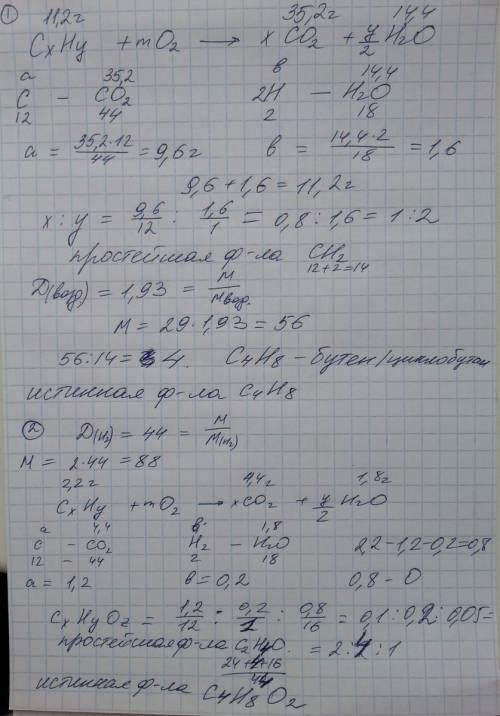 ① 11,2г 35,2г 14,4
CxHy + mO2 → x CO2 + y/2 H2O
a 35,2 в 14,4
C – CO2 2H – H2O
12 44 2 18
a = 35,2·12/44 = 9,6г в = 14,4·2/18 = 1,6
9,6 + 1,6 = 11,2г
x : y = 9,6/12 : 1,6/1 = 0,8 : 1,6 = 1 : 2
простейшая ф-ла CH2
12+2=14
Д(возд) = 1,93 = M/Mвозд.
M = 29·1,93 = 56
56:14 = 4. C4H8 – бутен/циклобутан
истинная ф-ла C4H8
② Д(H2) = 44 = M/M(H2)
M = 2·44 = 88
2,2г 4,4г 1,8г
CxHy + mO2 → xCO2 + y/2 H2O
a 4,4 в 1,8
C – CO2 H2 – H2O 2,2-1,2-0,2=0,8
12 – 44 2 18
a = 1,2 в = 0,2 0,8 – O
CxHyOz = 1,2/12 : 0,2/1 : 0,8/16 = 0,1 : 0,2 : 0,05 =
простейшая ф-ла C2H4O. = 2:4:1
24+4+16
44
истинная ф-ла C4H8O2